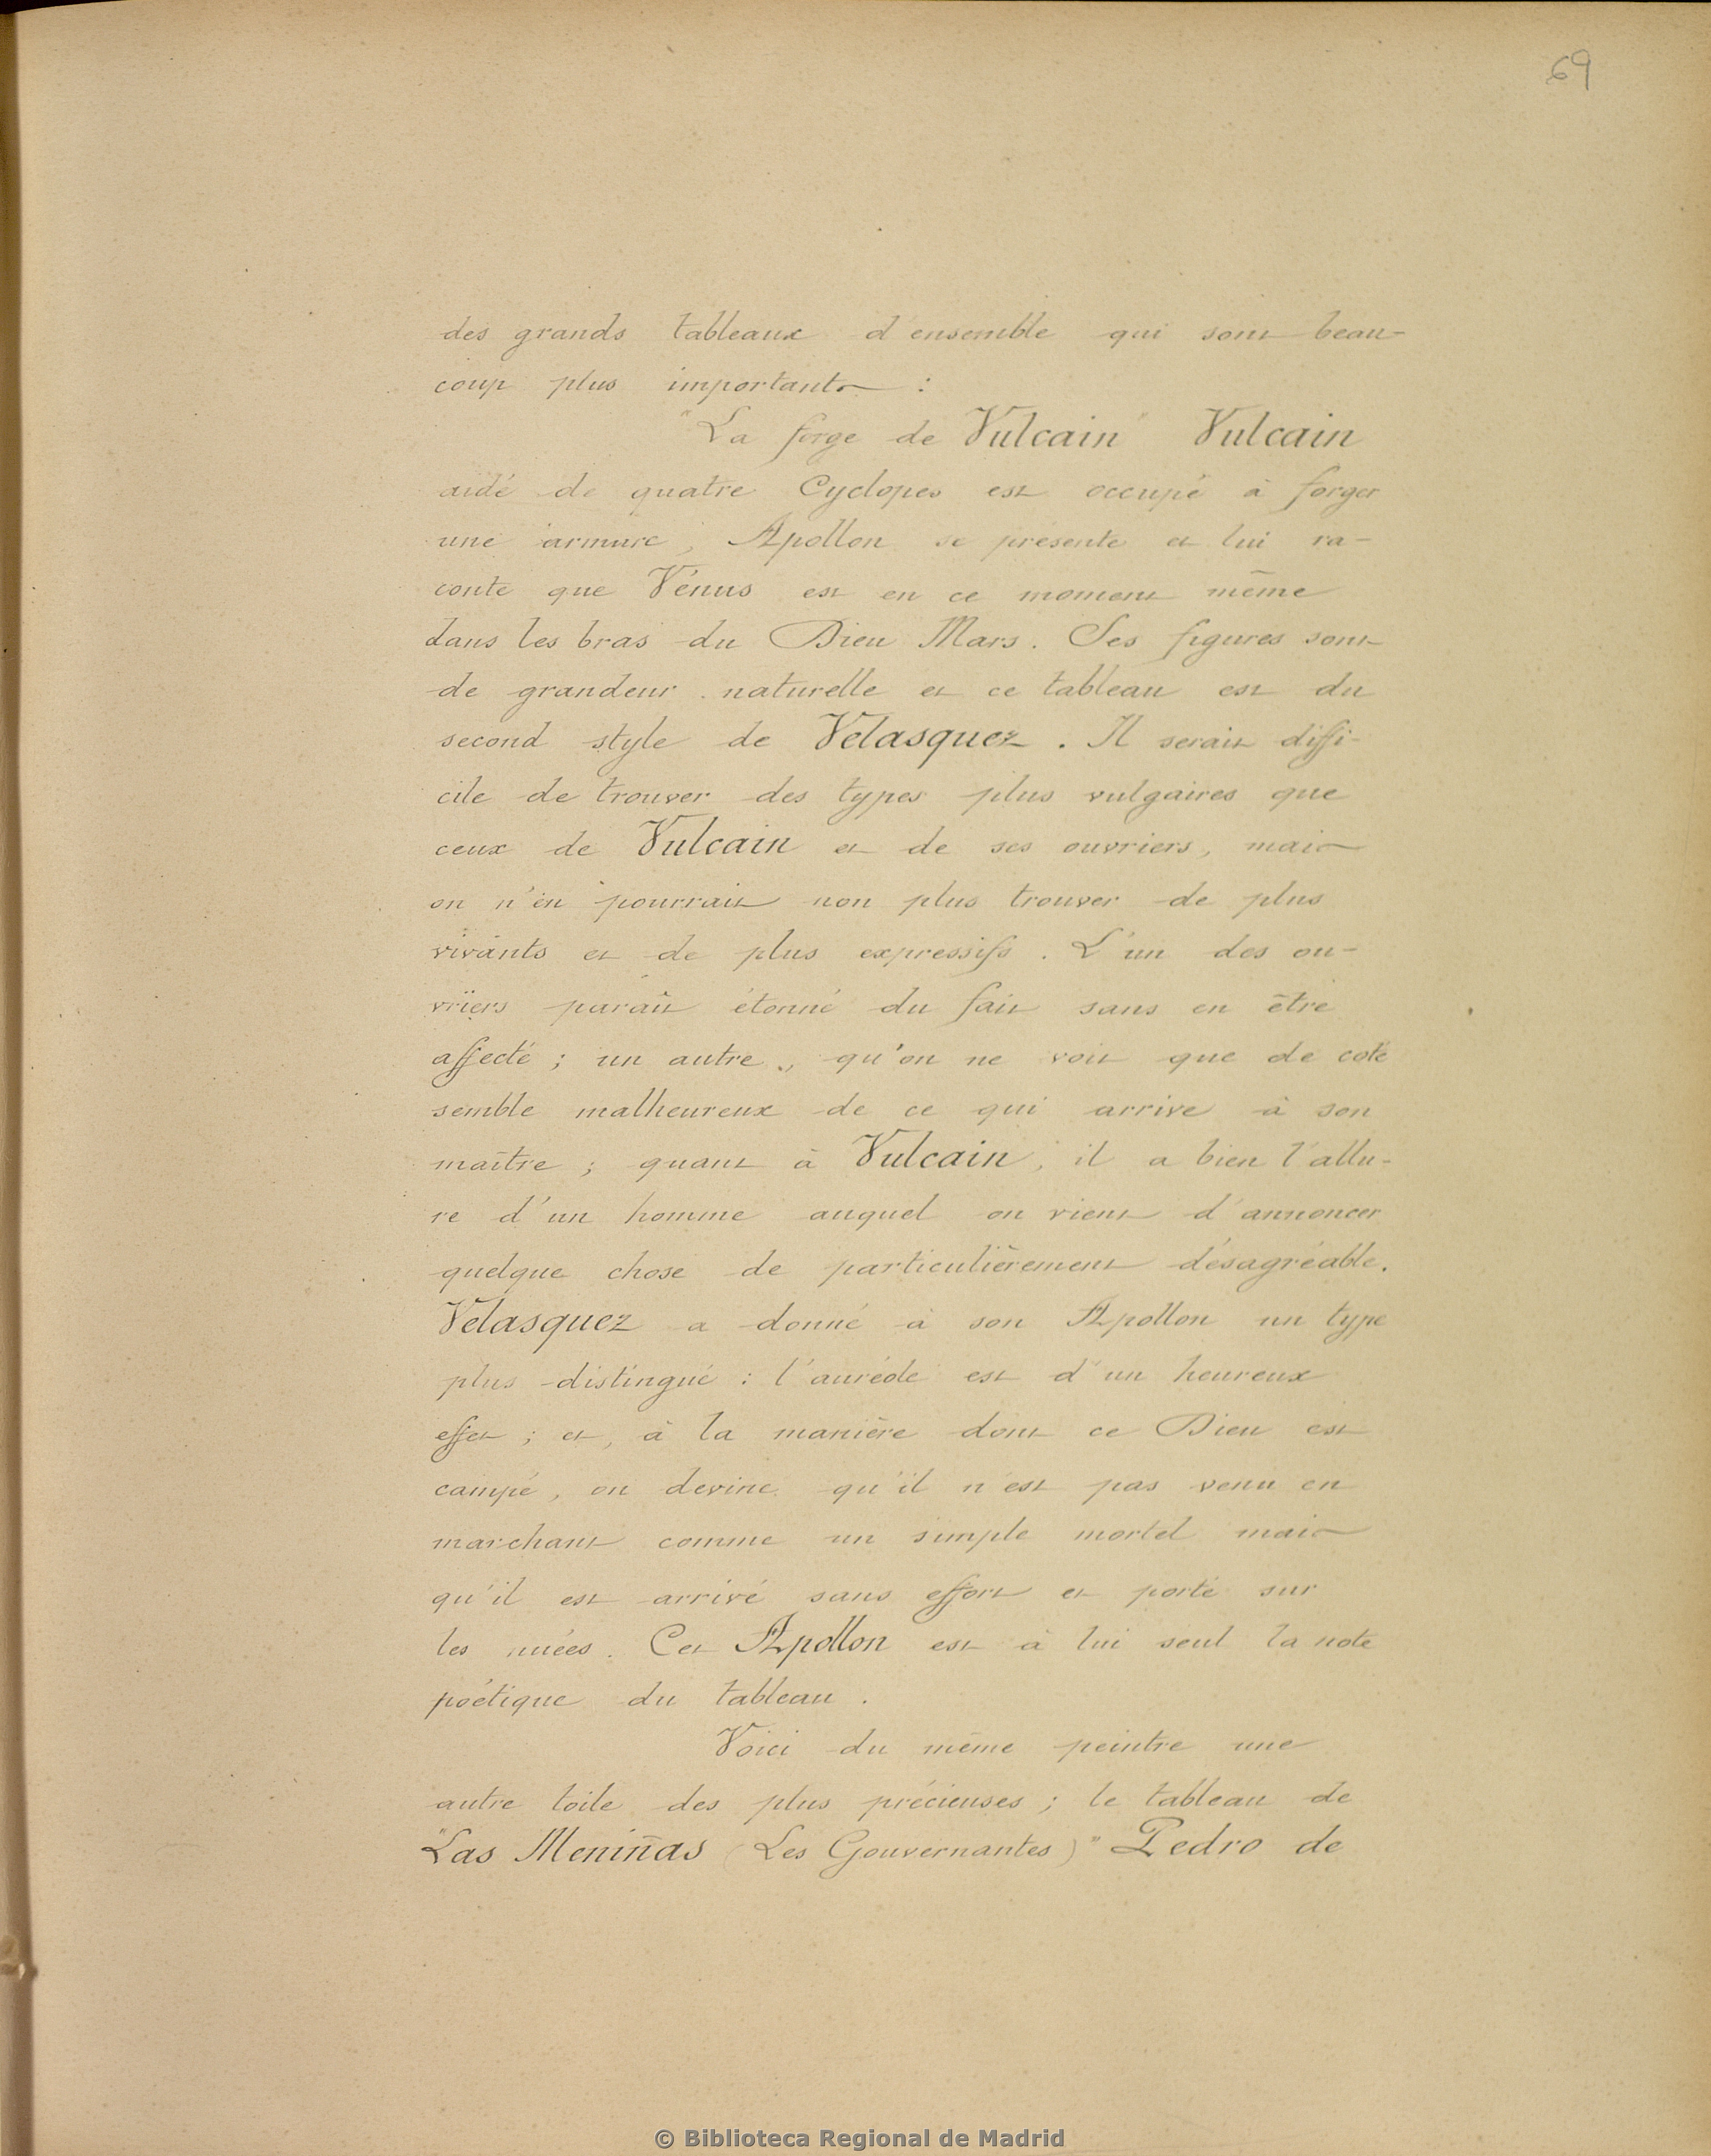 69
des grands tableaux d'ensemble qui sont beau-
coup plus importants :
"La forge de Vulcain" Vulcain
aidé de quatre Cyclopes est occupé à forger
une armure, Apollon se présente et lui ra-
conte que Vénus est en ce moment même
dans les bras du Dieu Mars. Ses figures sont
de grandeur naturelle et ce tableau est du
second style de Velasquez. Il serait diffi-
cile de trouver des types plus vulgaires que
ceux de Vulcain et de ses ouvriers, mais
on n'en pourrait non plus trouver de plus
vivants et de plus expressifs. L'un des ou-
vriers paraît étonné du fait sans en être
affecté ; un autre, qu'on ne voit que de coté
semble malheureux de ce qui arrive à son
maître ; quant à Vulcain, il a bien l'allu-
re d'un homme auquel on vient d'annoncer
quelque chose de particulièrement désagréable.
Velasquez a donné à son Apollon un type
plus distingué : l'auréole est d'un heureux
effet ; et, à la manière dont ce Dieu est
campé, on devine qu'il n'est pas venu en
marchant comme un simple mortel mais
qu'il est arrivé sans effort et porté sur
les nuées. Cet Apollon est à lui seul la note
poétique du tableau.
Voici du même peintre une
autre toile des plus précieuses ; le tableau de
"Las Meniñas (Les Gouvernantes)" Pedro de
© Biblioteca Regional de Madrid